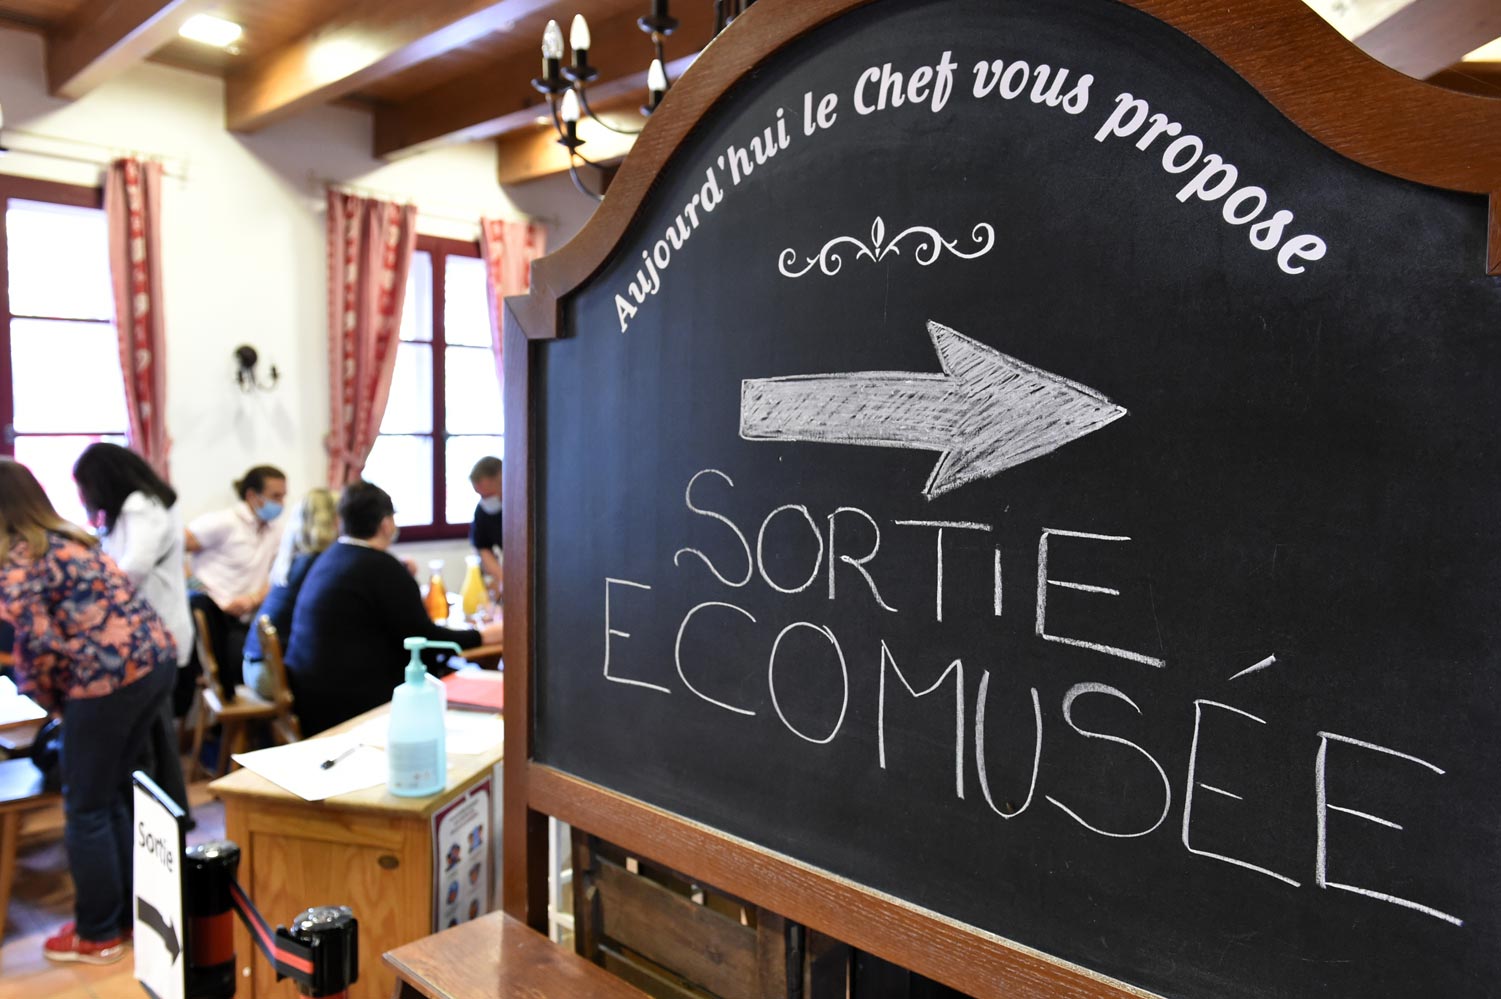 Aujourd'hui le Chef vous propose
SORTIE
ECOMUSÉE
Sortie